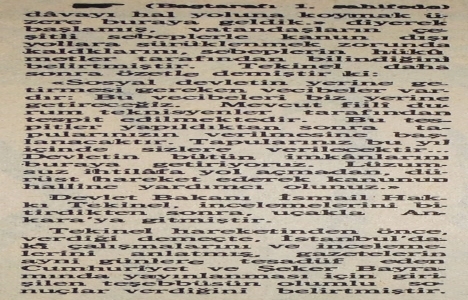 (Baştarafı 1. sahifede)
dâvayı hal yoluna koymak ü-
zere buraya geldik.» diyerek
başlamış, vatandaşların çe-
şitli sebeplerle kanun dışı
yollara sürüklenmek zorunda
kaldıklarını, sebeplerin hükü-
metlerce bilindiğini
belirtmiştir. Tekinel daha
sonra özetle demiştir ki:
«Sosyal devletin yerine ge-
tirmesi gereken vecibeler var-
dır. Bu vecibeleri biz yerine
getireceğiz. Mevcut fiilî du-
rum teknisyenler tarafından
tespit edilmektedir. Bu tes-
pitler yapıldıktan sonra ta-
pularınızın verilmesine baş-
lanacaktır. Tapularınız bu yıl
içinde sizlere verilecektir.
Devletin bütün imkânlarını
buraya getiriyoruz. Lüzum-
suz ihtilâfa yol açmadan, dü-
rüst hareket ederek kanunun
halline yardımcı olunuz.»
Devlet Bakanı İsmail Hak-
kı Tekinel, incelemelerini bi-
tirdikten sonra, uçakla An-
kara'ya gitmiştir.
Tekinel hareketinden önce,
verdiği demeçte, İstanbul'da-
ki çalışmalarını ve inceleme-
lerini anlatmış, gazetelerin
aynı günlere tesadüf eden
Cumhuriyet ve Şeker Bayra-
mında yayınlanması için giri-
şilen teşebbüsün olumlu so-
nuçlar verdiğini belirtmiştir.